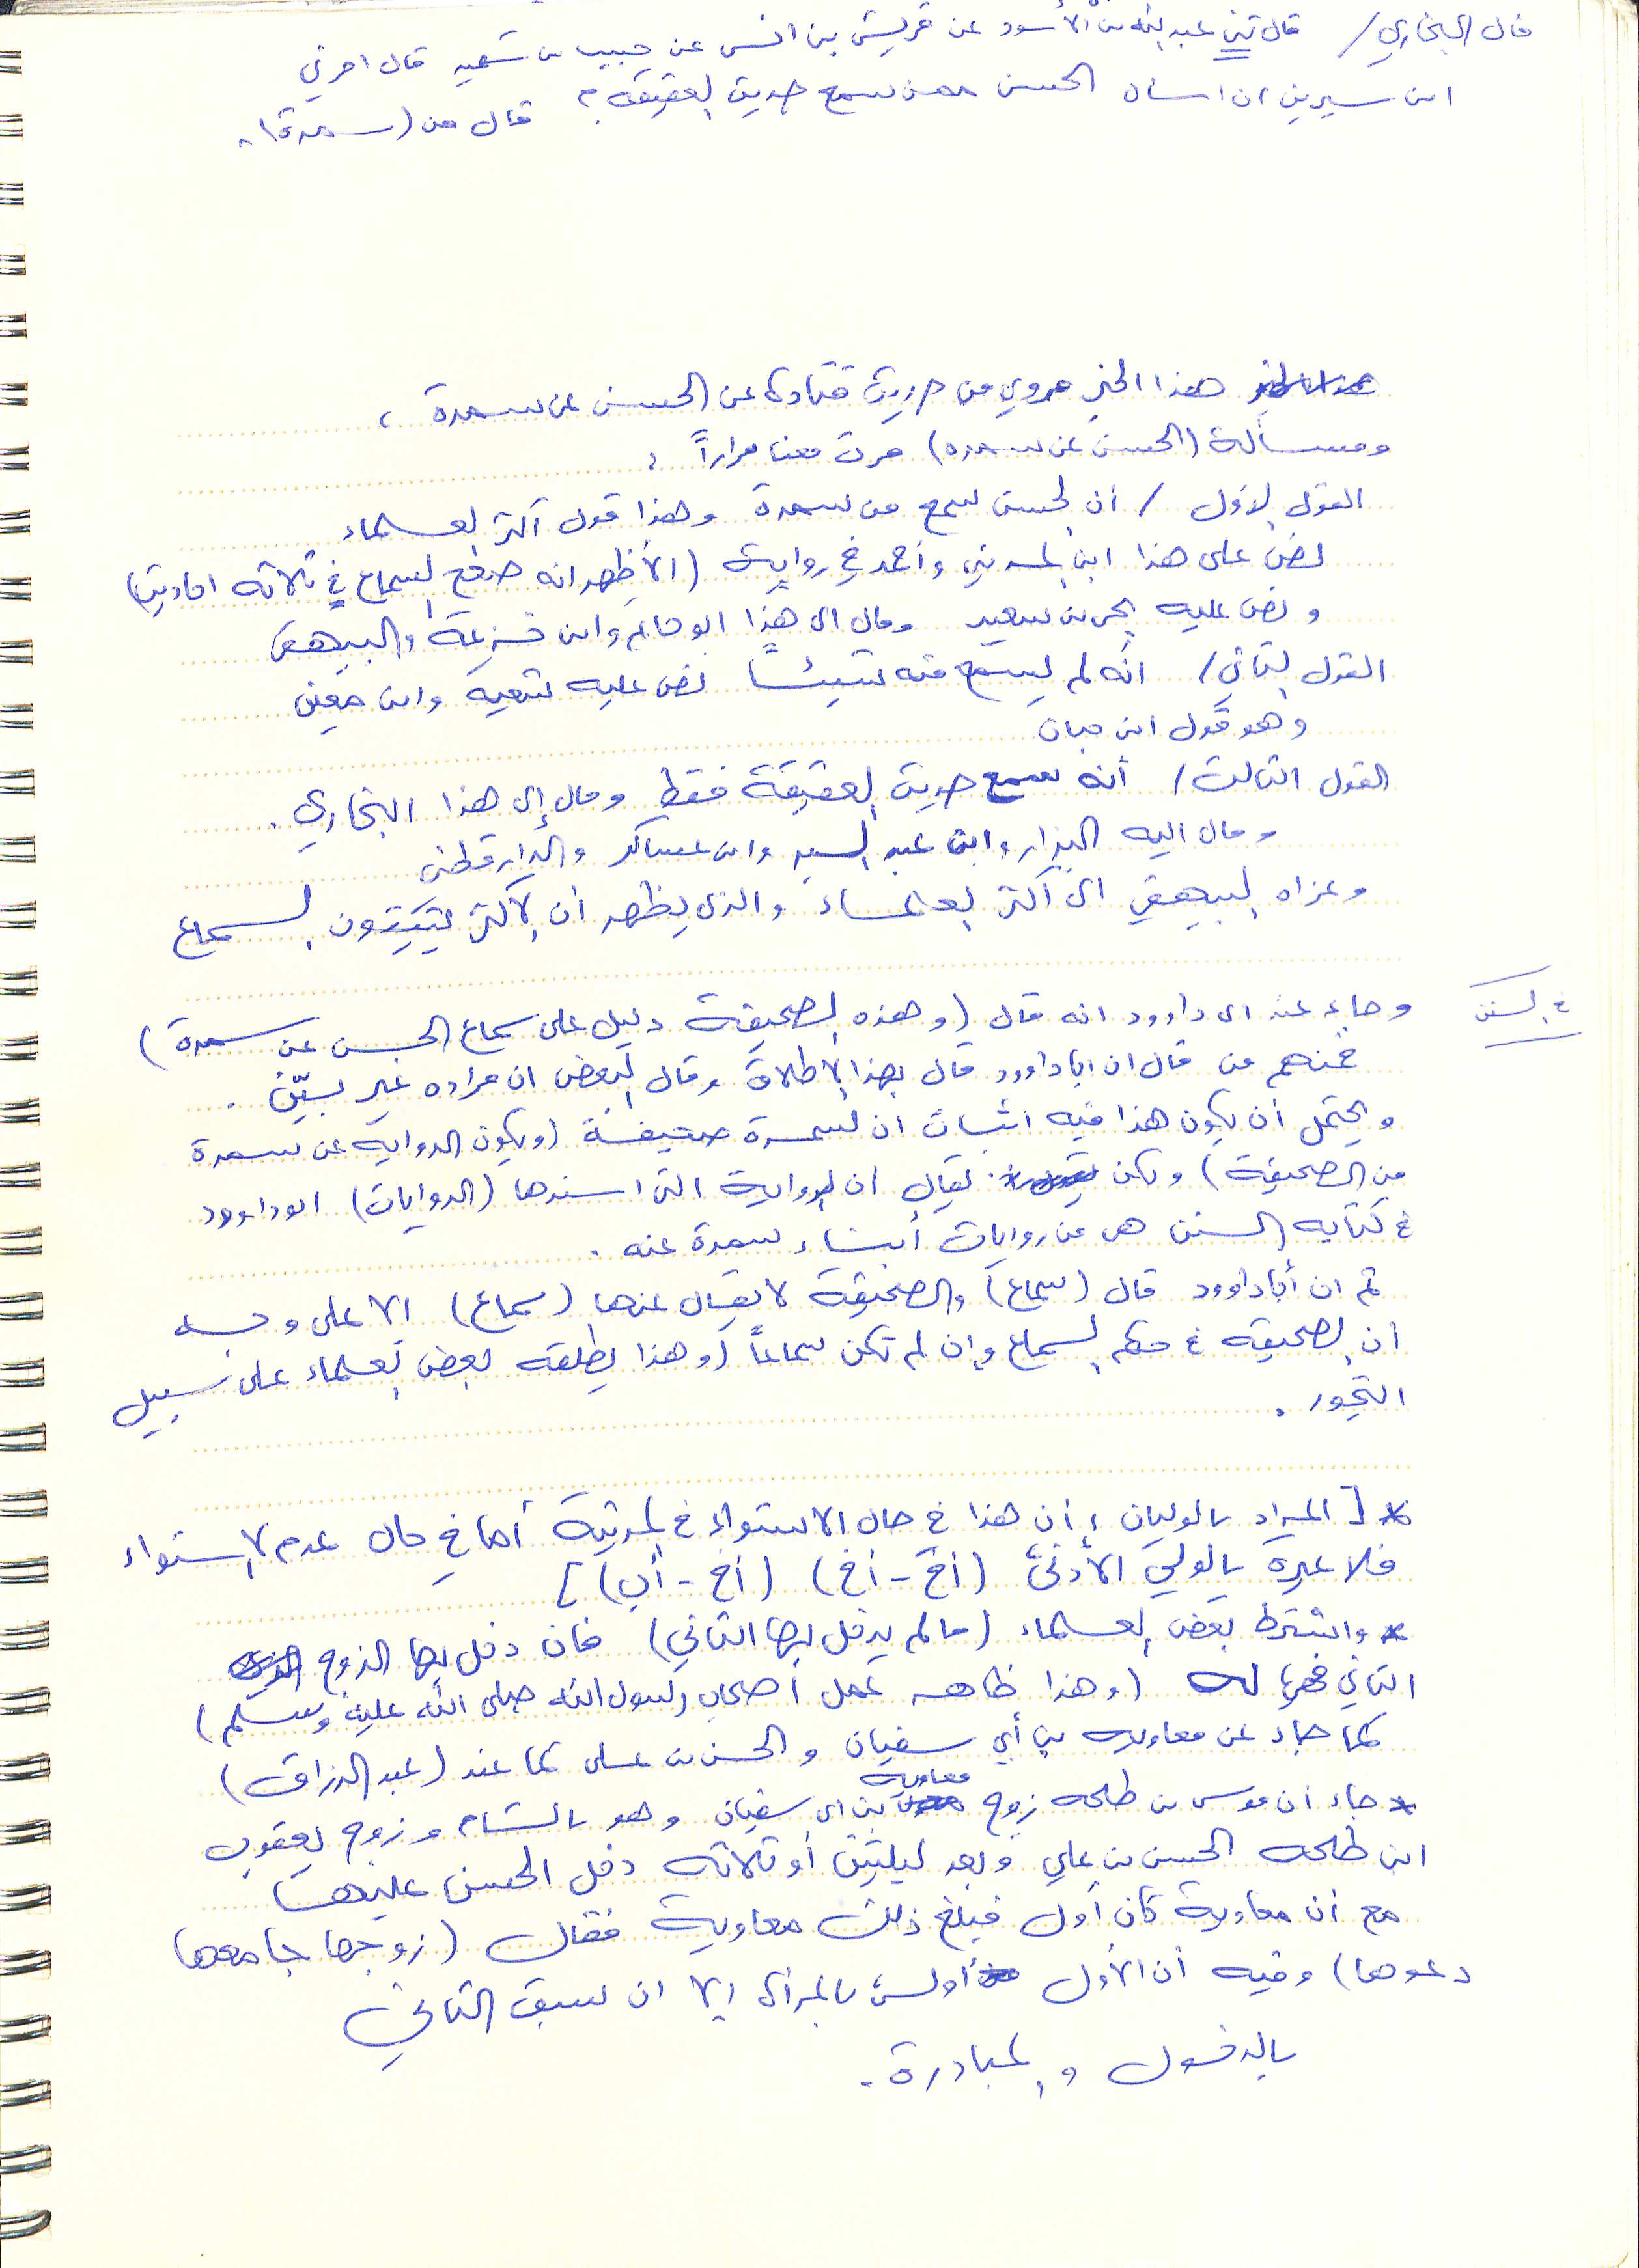 قال البخاري / قال ثني عبدالله بن الأسود عن قريش بن انس عن حبيب بن شهيد قال امرني
ابن سيرين ان اسأل الحسن ممن سمع حديث العقيقه ؟ قال من (سمرة) .
هذا الخبر مروي من حديث قتادة عن الحسن عن سمرة ،
ومسألة (الحسن عن سمره) مرت معنا مراراً :
القول الأول / أن الحسن سمع من سمرة وهذا قول أكثر العلماء
نص على هذا ابن المديني وأحمد في رواية (الأظهر انه صرح بالسماع في ثلاثه احاديث)
ونص عليه يحيى بن سعيد ومال الى هذا ابو حاتم وابن خزيمة والبيهقي
القول الثاني / انه لم يسمع منه شيئاً نص عليه شعبه وابن معين
وهو قول ابن حبان
القول الثالث / أنه سمع حديث العقيقة فقط ومال إلى هذا البخاري .
ومال اليه البزار وابن عبد السيد وابن عساكر والدارقطني
وعزاه البيهقي الى أكثر العلماء والذي يظهر أن الأكثر يثبتون السماع
في السنن
وجاء عند ابي داوود انه قال (وهذه الصحيفة دليل على سماع الحسن عن سمرة)
فمنهم من قال ان اباداوود قال بهذا الإطلاق وقال البعض ان مراده غير بيّن .
ويحتمل أن يكون هذا فيه اثبات ان لسمرة صحيفة (ويكون الروايه عن سمرة
من الصحيفة) ولكن يقال ان الرواية التي اسندها (الروايات) ابوداوود
في كتابه السنن هي من روايات أبناء سمرة عنه .
ثم ان أباداوود قال (سماع) والصحيفة لا يقال عنها (سماع) الا على وجه
أن الصحيفه في حكم السماع وإن لم تكن سماعاً (وهذا يطلقه بعض العلماء على سبيل
التجوز .
* [ المراد بالوليان ؛ أن هذا في حال الاستواء في المرتبة أما في حال عدم الاستواء
فلا عبرة بالولي الأدنى (أخ - أخ) (أخ - أب) ]
* واشترط بعض العلماء (مالم يدخل بها الثاني) فان دخل بها الزوج
الثاني فهي له (وهذا ظاهر عمل أصحاب رسول الله صلى الله عليه وسلم)
كما جاء عن معاويه بن أبي سفيان والحسن بن علي كما عند (عبد الرزاق)
* جاء أن موسى بن طلحه زوج معاوية بن ابي سفيان وهو بالشام وزوج يعقوب
ابن طلحه الحسن بن علي وبعد ليلتين أو ثلاثه دخل الحسن عليها
مع أن معاوية كان أول فبلغ ذلك معاوية فقال (زوجها جامعها
دعوها) وفيه أن الأول أولى بالمرأة إلا ان سبق الثاني
بالدخول والمبادرة .